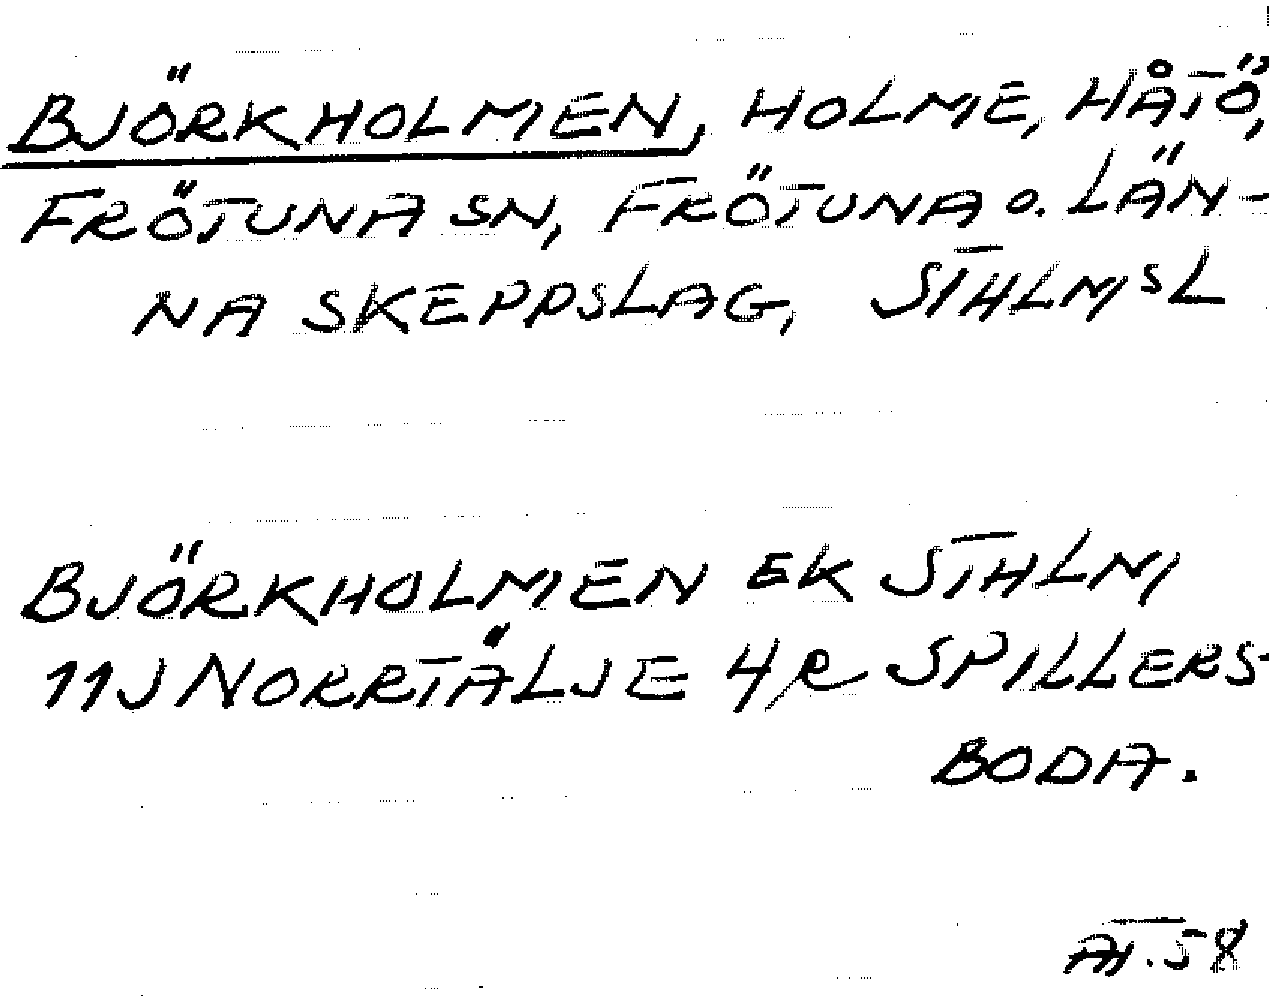 BJÖRKHOLMEN, HOLME, HÅTÖ,
FRÖTUNA SN, FRÖTUNA O. LÄN-
NA SKEPPSLAG, STHLMSL
BJÖRKHOLMEN EK STHLM
11J NORRTÄLJE 4R SPILLERS-
BODA.